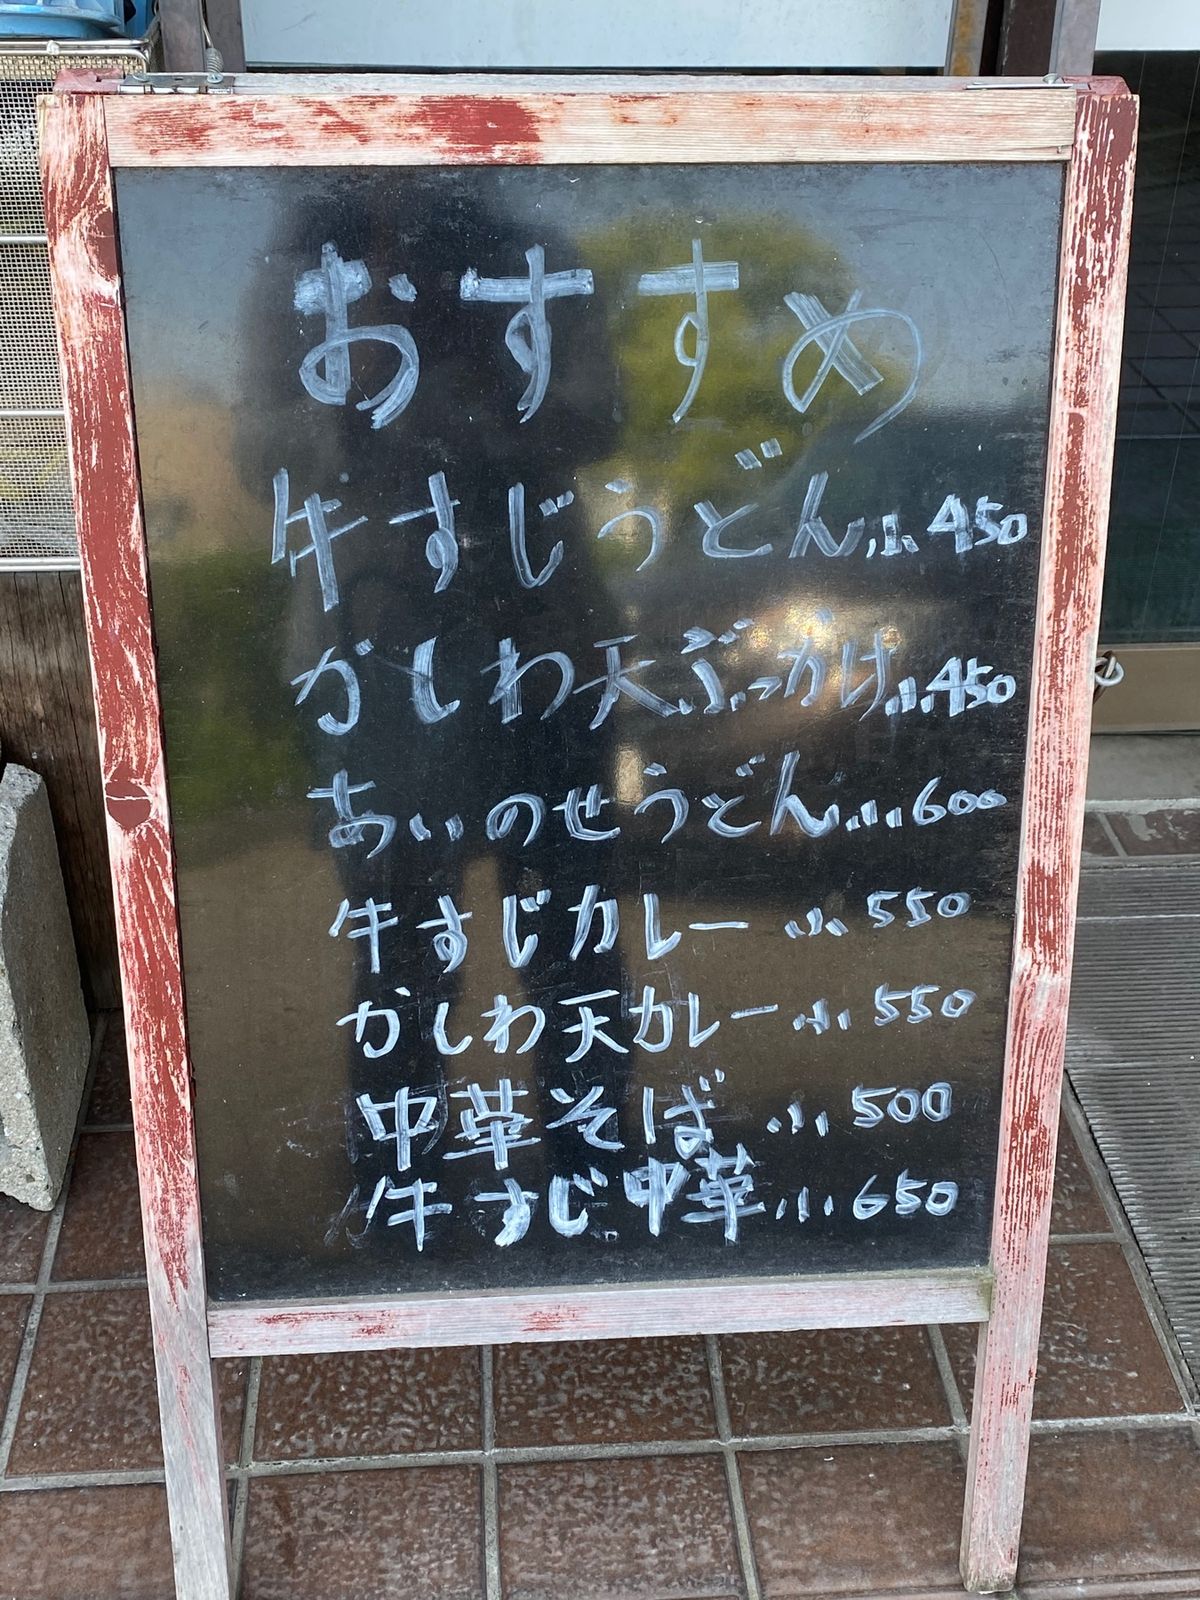 おすすめ
牛すじうどん小450
かしわ天ぶっかけ小450
あいのせうどん小600
牛すじカレー小550
かしわ天カレー小550
中華そば小500
牛すじ中華小650